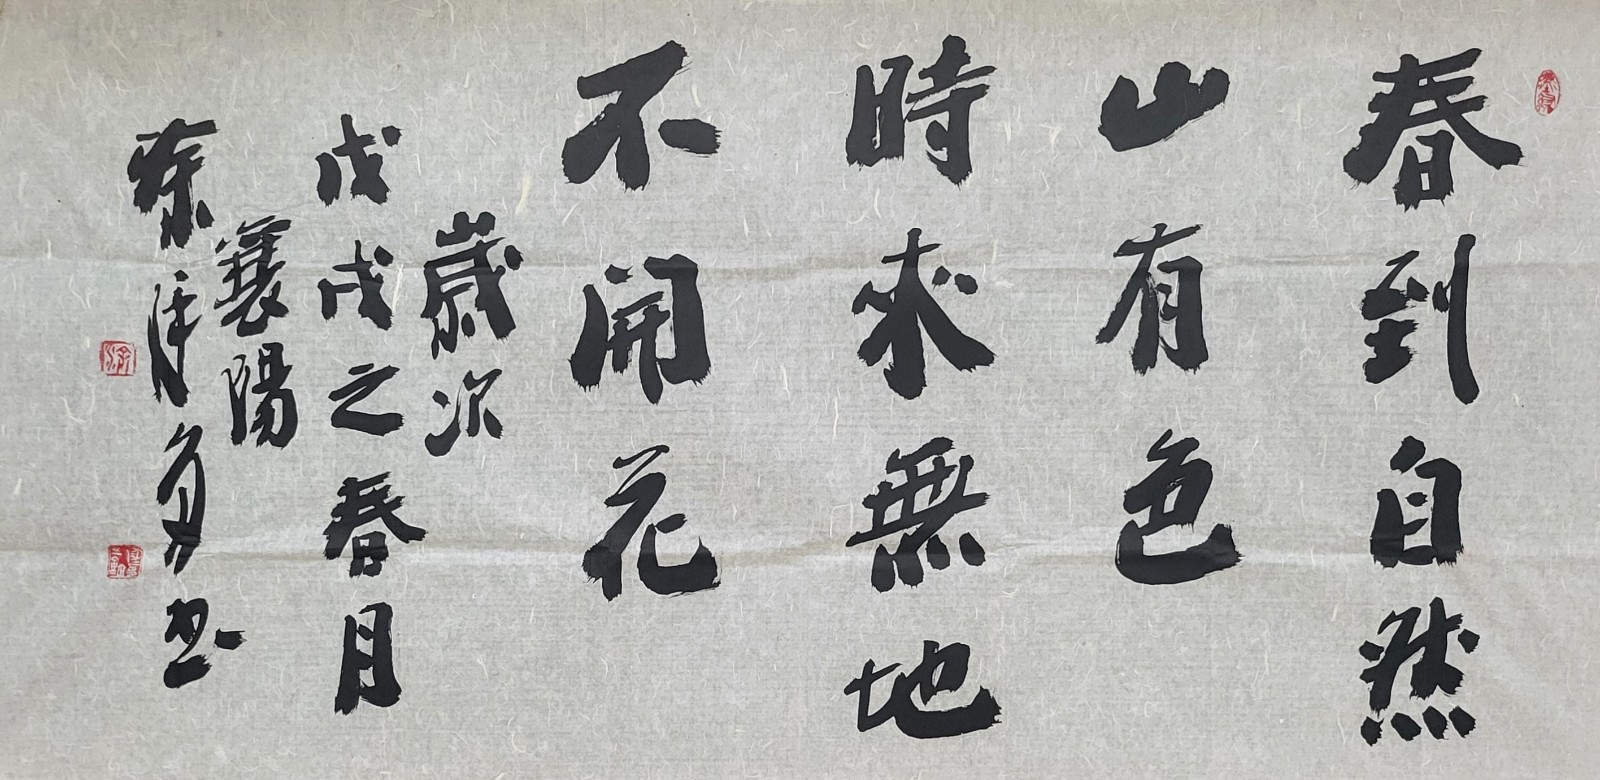 春到自然
山有色
時來無地
不開花
歲次
戊戌之春月
襄陽
書